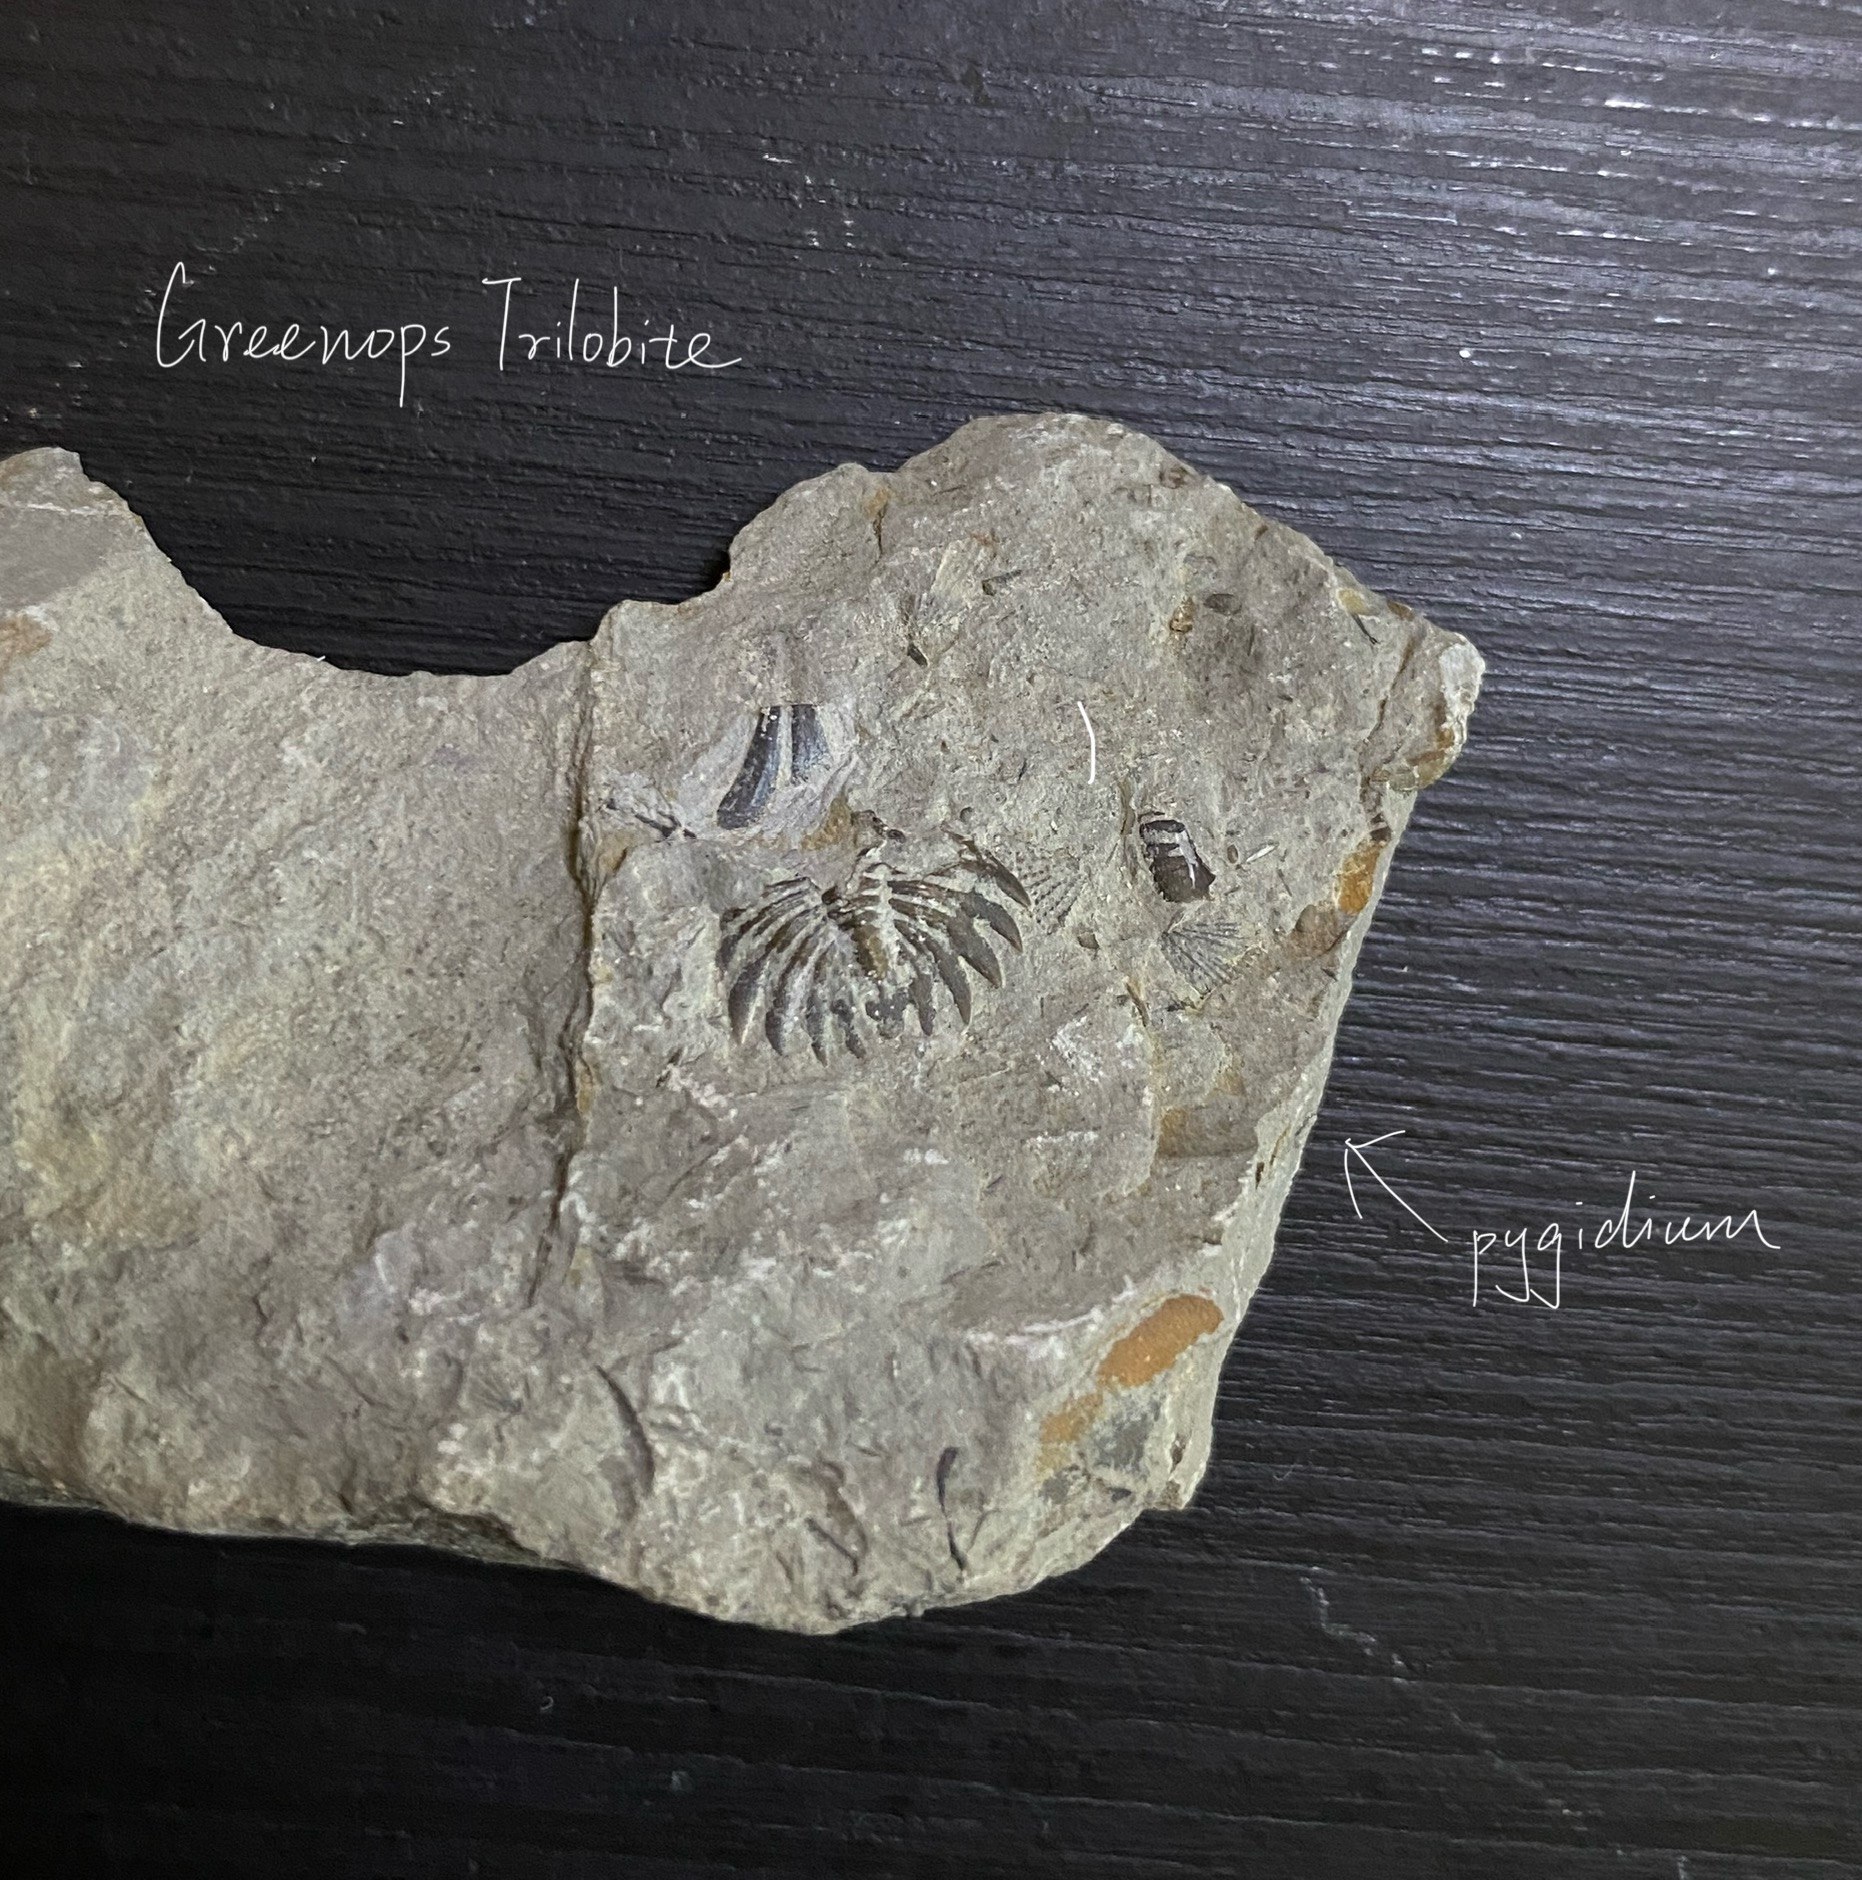 Greenops Trilobite
pygidium